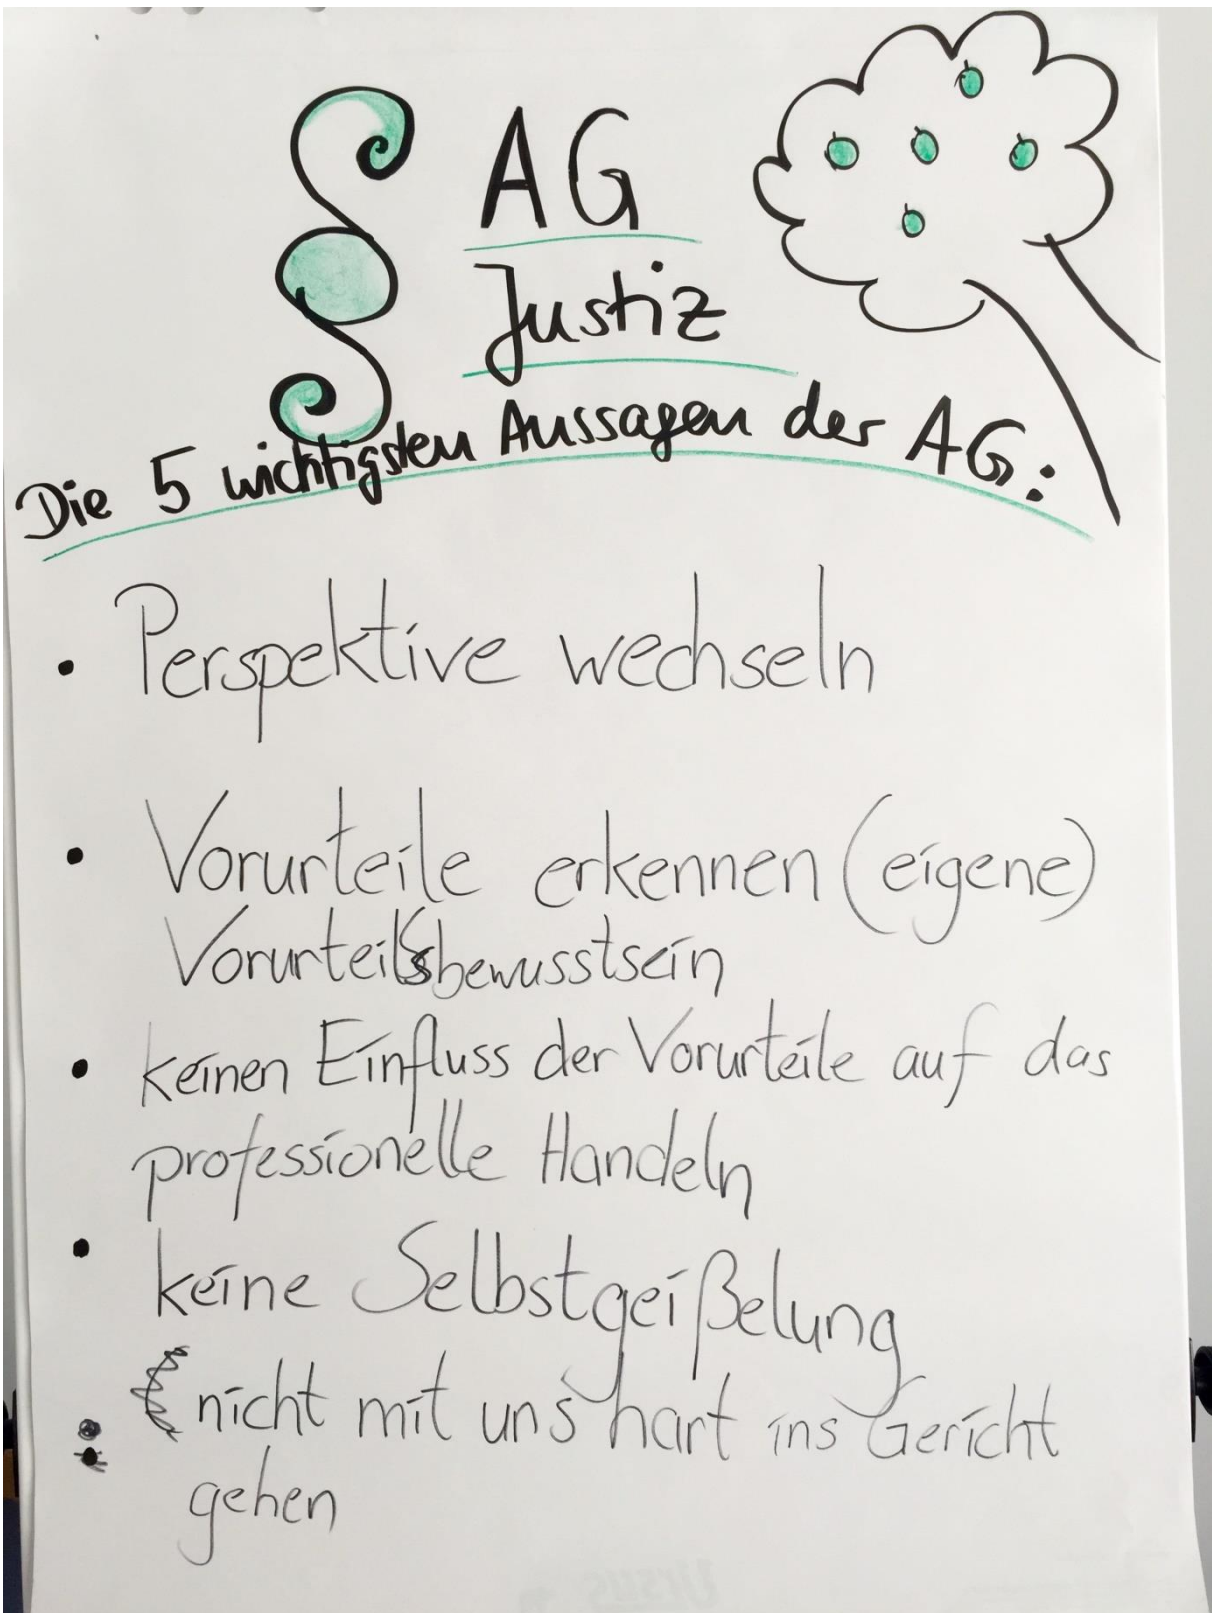 § AG
Justiz
Die 5 wichtigsten Aussagen der AG:
• Perspektive wechseln
• Vorurteile erkennen (eigene)
Vorurteilsbewusstsein
• keinen Einfluss der Vorurteile auf das
professionelle Handeln
• keine Selbstgeißelung
• nicht mit uns hart ins Gericht
gehen